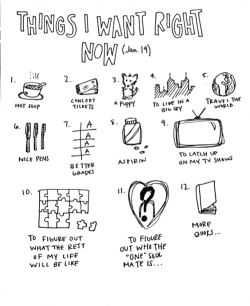 THINGS I WANT RIGHT
NOW (Jan. 19)
1.
HOT SOUP
2.
CONCERT
TICKETS
3.
A PUPPY
4.
TO LIVE IN A
BIG CITY
5.
TRAVEL THE
WORLD
6.
NICE PENS
7.
A
A
A
A
BETTER
GRADES
8.
ASPIRIN
9.
TO CATCH UP
ON MY TV SHOWS
10.
TO FIGURE OUT
WHAT THE REST
OF MY LIFE
WILL BE LIKE
11.
?
TO FIGURE
OUT WHO THE
"ONE" SOUL
MATE IS...
12.
MORE
BOOKS...